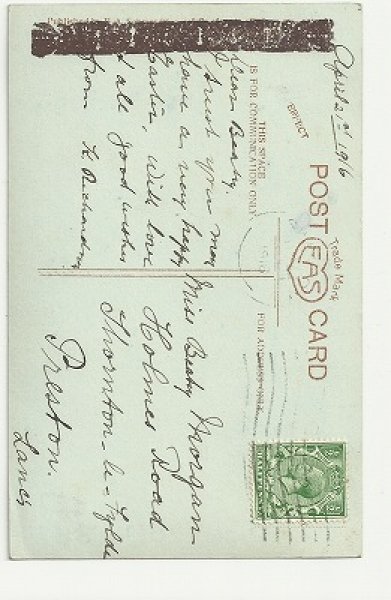 April 21st 1916
POST CARD
Trade Mark
FAS
THIS SPACE
IS FOR COMMUNICATION ONLY
FOR ADDRESS ONLY
Dear Beaty,
I trust you may
have a very happy
Easter, with love
& all good wishes
from H. Richardson
Miss Beaty Morgan
Holmes Road
Thornton-le-Fylde
Preston.
Lancs